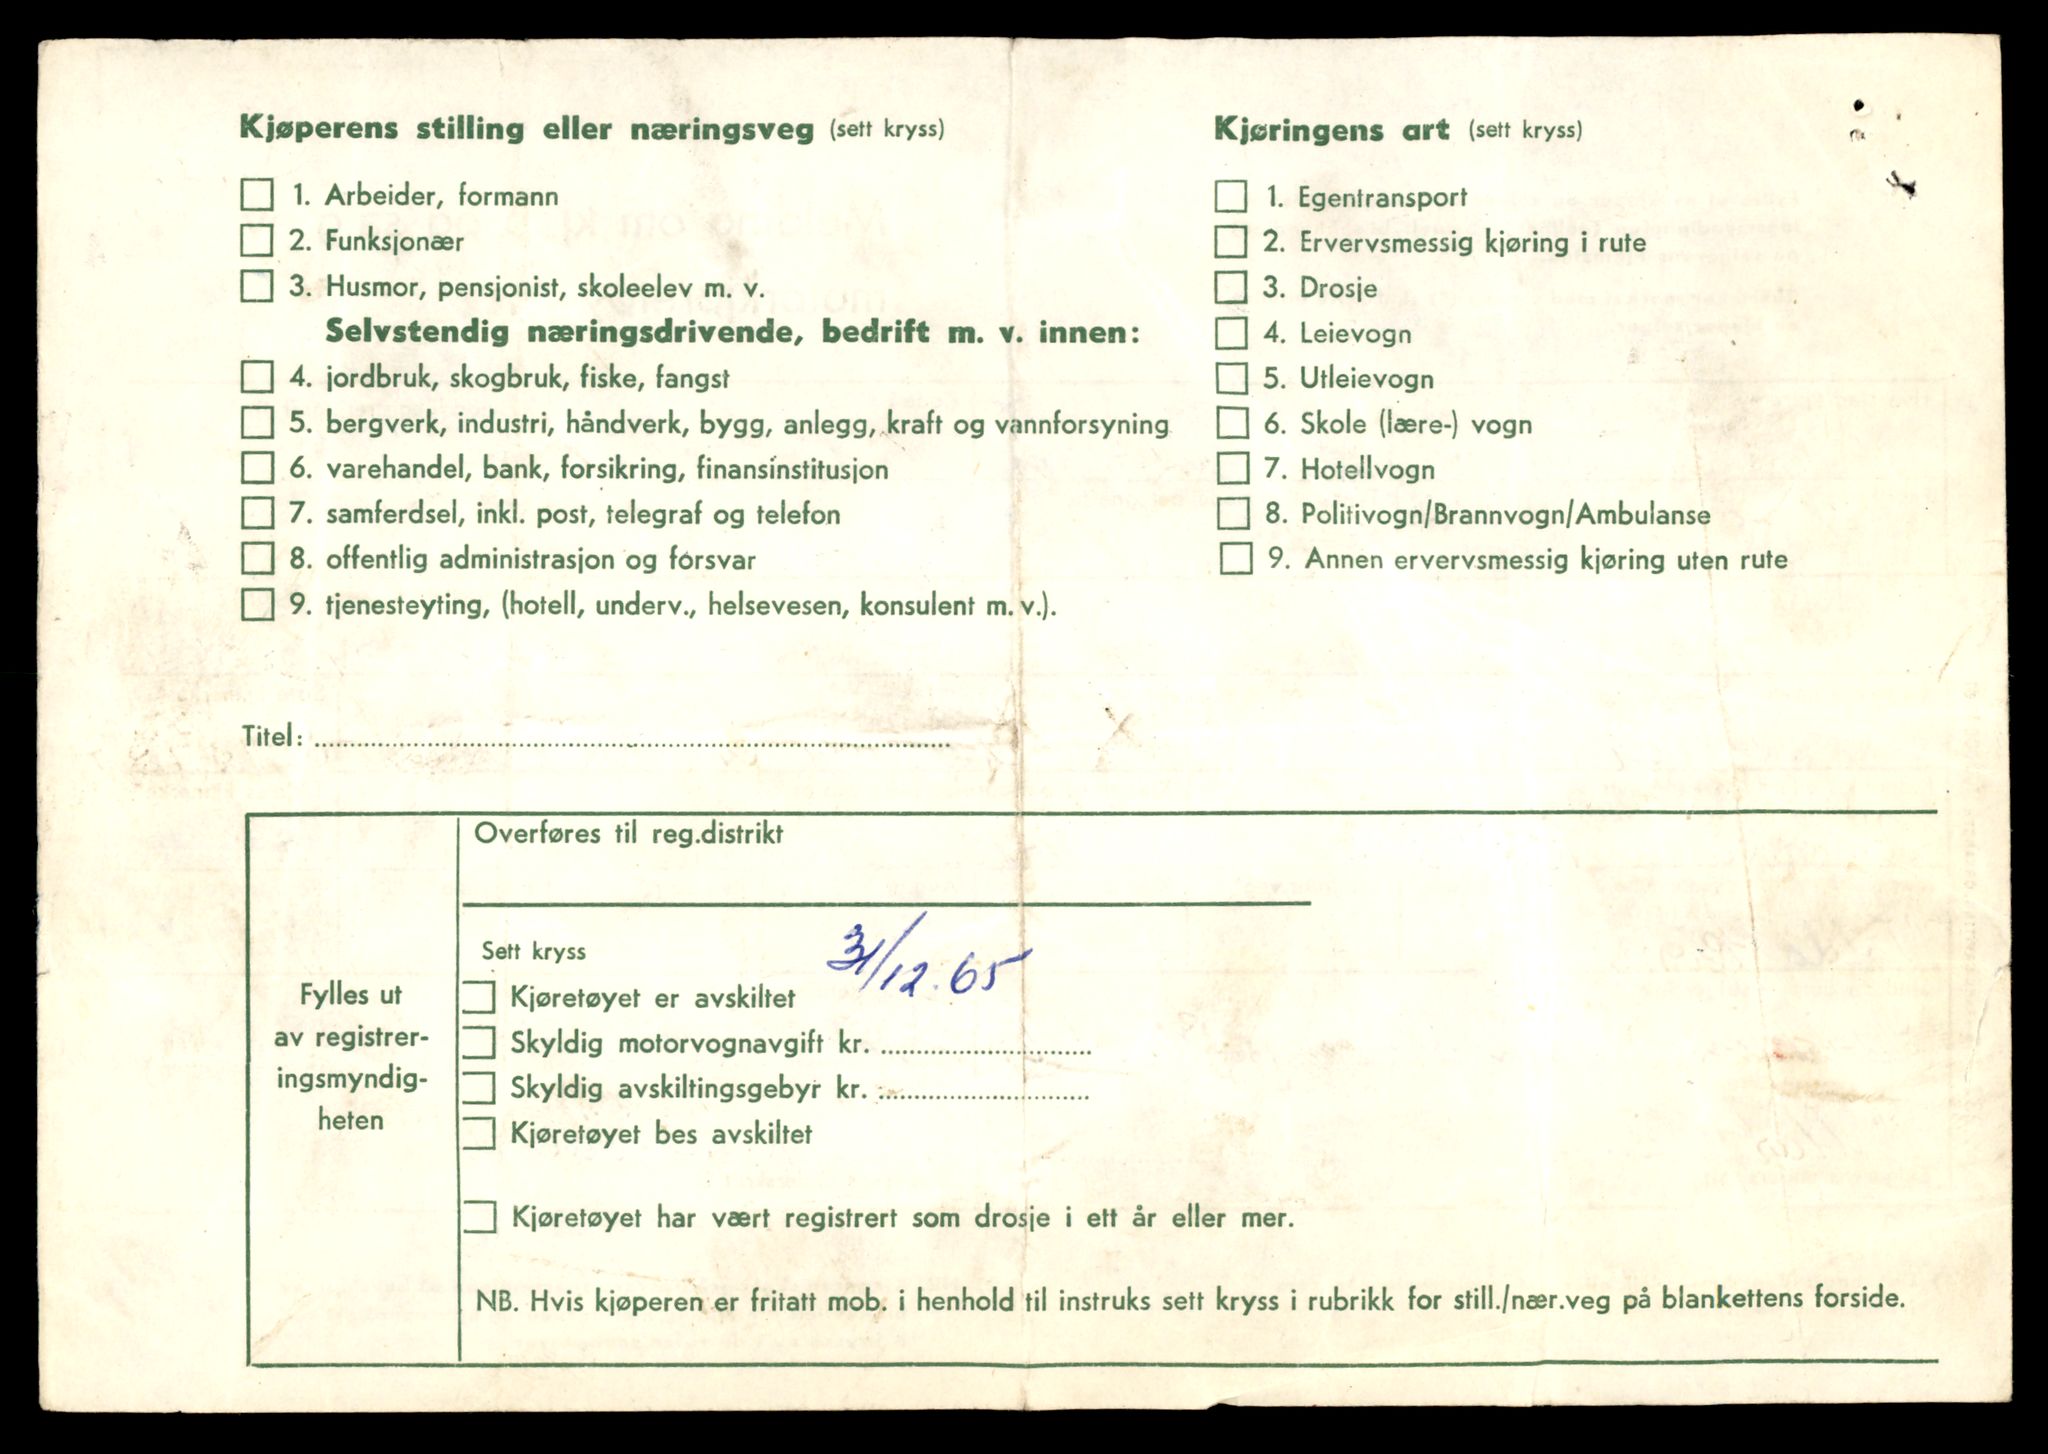 Kjøperens stilling eller næringsveg (sett kryss)
1. Arbeider, formann
2. Funksjonær
3. Husmor, pensjonist, skoleelev m. v.
Selvstendig næringsdrivende, bedrift m. v. innen:
4. jordbruk, skogbruk, fiske, fangst
5. bergverk, industri, håndverk, bygg, anlegg, kraft og vannforsyning
6. varehandel, bank, forsikring, finansinstitusjon
7. samferdsel, inkl. post, telegraf og telefon
8. offentlig administrasjon og forsvar
9. tjenesteyting, (hotell, underv., helsevesen, konsulent m. v.).
Kjøringens art (sett kryss)
1. Egentransport
2. Ervervsmessig kjøring i rute
3. Drosje
4. Leievogn
5. Utleievogn
6. Skole (lære-) vogn
7. Hotellvogn
8. Politivogn/Brannvogn/Ambulanse
9. Annen ervervsmessig kjøring uten rute
Titel:
Fylles ut
av registrer-
ingsmyndig-
heten
Overføres til reg.distrikt
Sett kryss
31/12.65
Kjøretøyet er avskiltet
Skyldig motorvognavgift kr.
Skyldig avskiltingsgebyr kr.
Kjøretøyet bes avskiltet
Kjøretøyet har vært registrert som drosje i ett år eller mer.
NB. Hvis kjøperen er fritatt mob. i henhold til instruks sett kryss i rubrikk for still./nær.veg på blankettens forside.